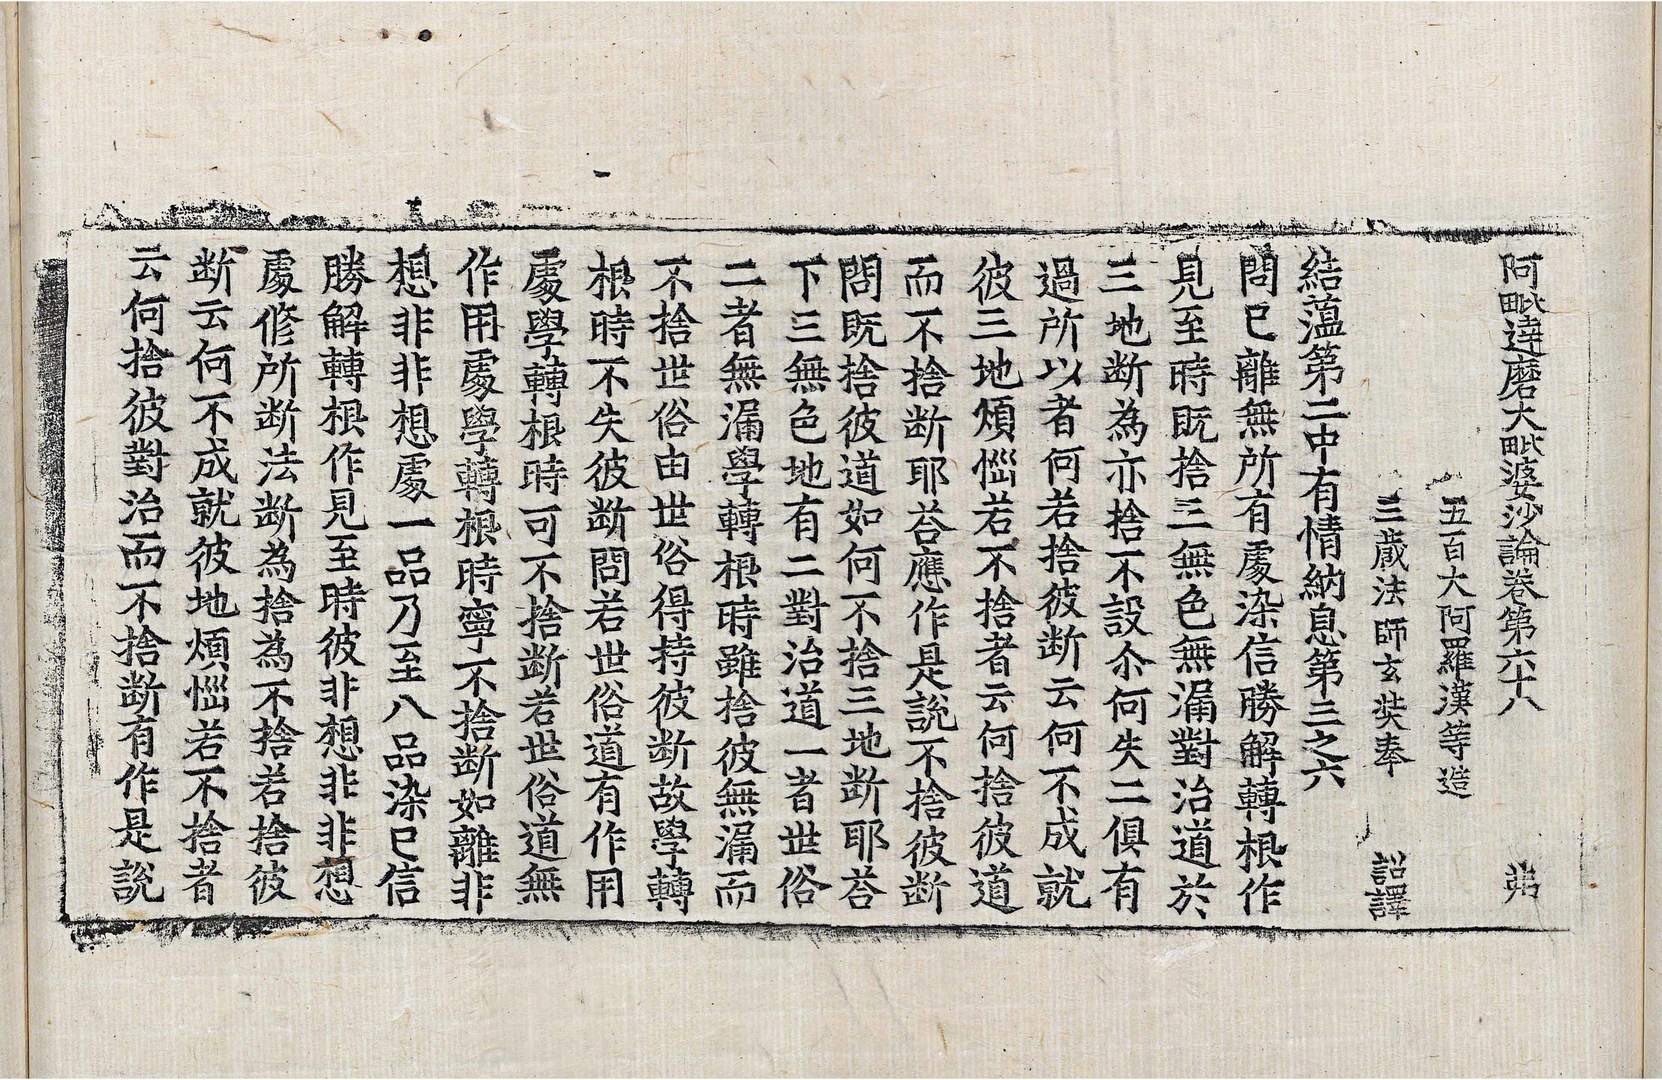 阿毗達磨大毗婆沙論卷第六十八　弟
五百大阿羅漢等造
三藏法師玄奘奉　詔譯
結蘊第二中有情納息第三之六
問已離無所有處染信勝解轉根作
見至時既捨三無色無漏對治道於
三地断為亦捨不設尒何失二俱有
過所以者何若捨彼断云何不成就
彼三地煩惱若不捨者云何捨彼道
而不捨断耶荅應作是說不捨彼断
問既捨彼道如何不捨三地断耶荅
下三無色地有二對治道一者世俗
二者無漏學轉根時雖捨彼無漏而
不捨世俗由世俗得持彼断故學轉
根時不失彼断問若世俗道有作用
處學轉根時可不捨断若世俗道無
作用處學轉根時寧不捨断如離非
想非非想處一品乃至八品染已信
勝解轉根作見至時彼非想非非想
處修所断法断為捨為不捨若捨彼
断云何不成就彼地煩惱若不捨者
云何捨彼對治而不捨断有作是說